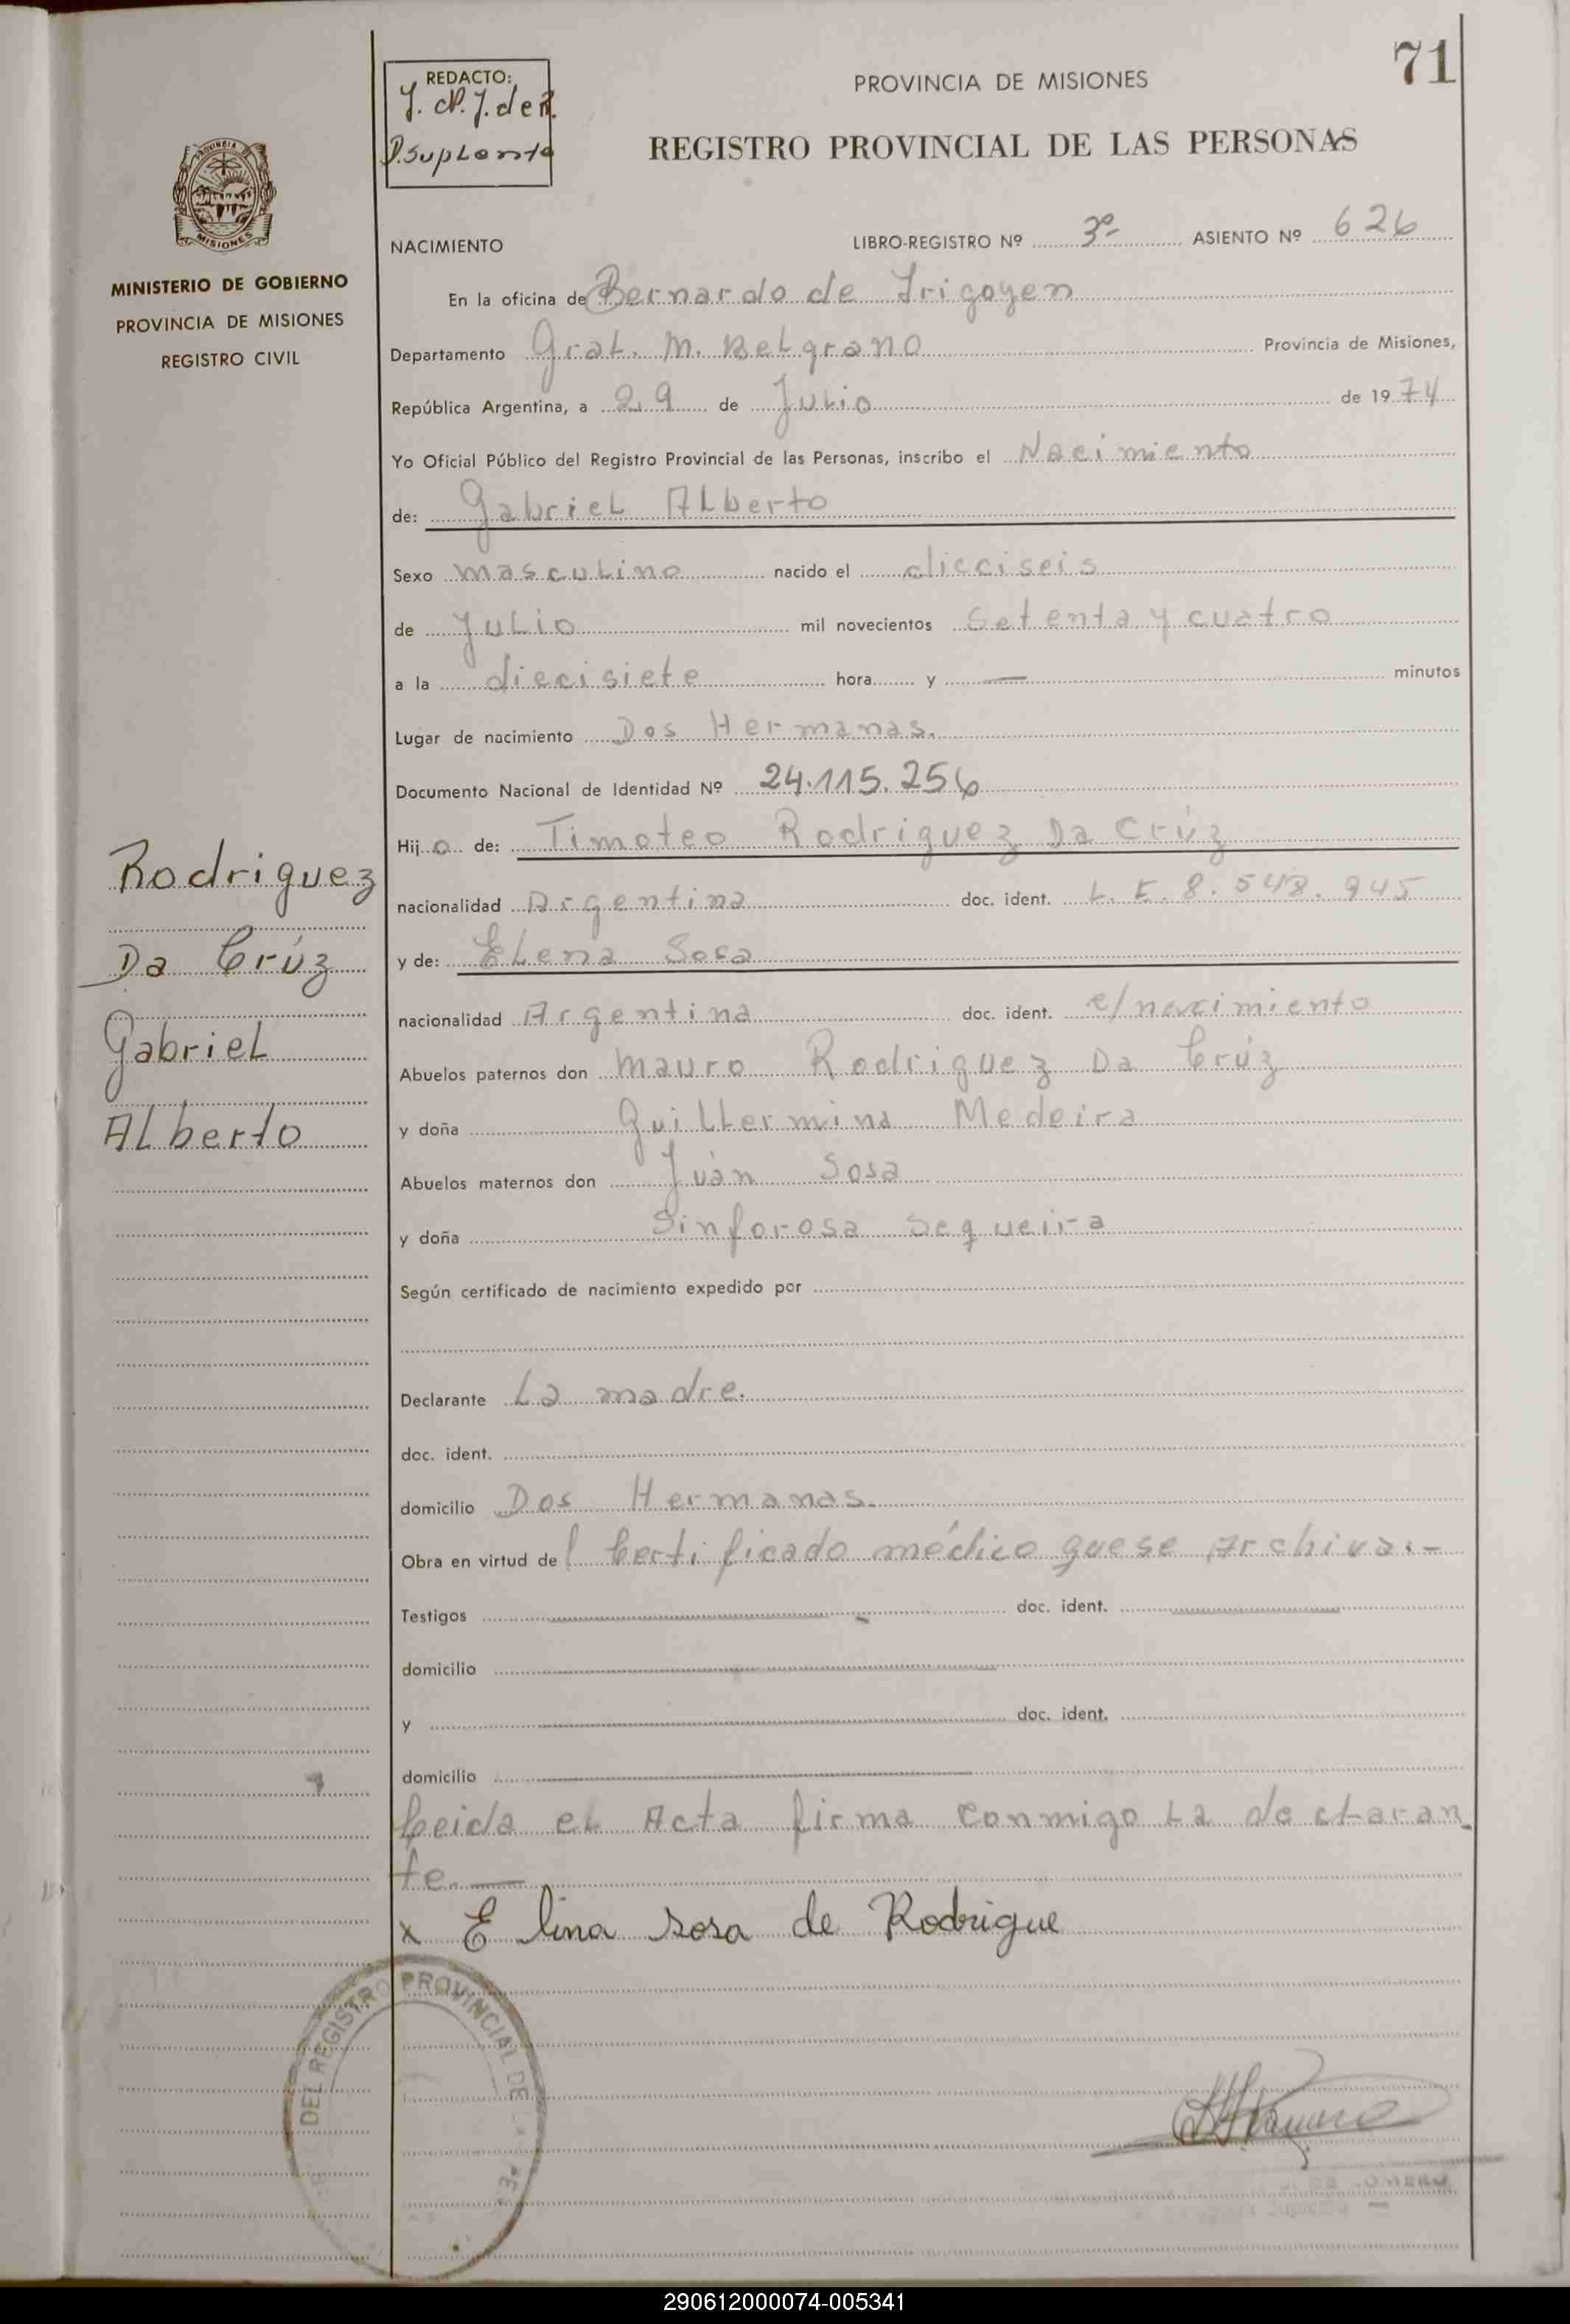 71
REDACTO:
D. Suplente
PROVINCIA DE MISIONES
REGISTRO PROVINCIAL DE LAS PERSONAS
MISIONES
MINISTERIO DE GOBIERNO
PROVINCIA DE MISIONES
REGISTRO CIVIL
NACIMIENTO LIBRO-REGISTRO Nº 3º- ASIENTO Nº 626
En la oficina de Bernardo de Irigoyen
Departamento Gral. M. Belgrano Provincia de Misiones,
República Argentina, a 29 de Julio de 1974
Yo Oficial Público del Registro Provincial de las Personas, inscribo el Nacimiento
de: Gabriel Alberto
Sexo masculino nacido el dieciseis
de Julio mil novecientos Setenta y cuatro
a la diecisiete hora y — minutos
Lugar de nacimiento Dos Hermanas.
Documento Nacional de Identidad Nº 24.115.256
Hijo de: Timoteo Rodriguez Da Crúz
nacionalidad Argentina doc. ident. L.E. 8.548.945
y de: Elena Sosa
nacionalidad Argentina doc. ident. c/nacimiento
Abuelos paternos don Mauro Rodriguez Da Crúz
y doña Guillermina Medeira
Abuelos maternos don Juan Sosa
y doña Sinforosa Sequeira
Según certificado de nacimiento expedido por
Declarante La madre.
doc. ident.
domicilio Dos Hermanas.
Obra en virtud del Certificado médico que se Archiva.-
Testigos doc. ident.
domicilio
y doc. ident.
domicilio
Leida el Acta firma conmigo La declaran
te.—
x Elina sosa de Rodrigue
Rodriguez
Da Crúz
Gabriel
Alberto
DEL REGISTRO PROVINCIAL DE LAS
290612000074-005341